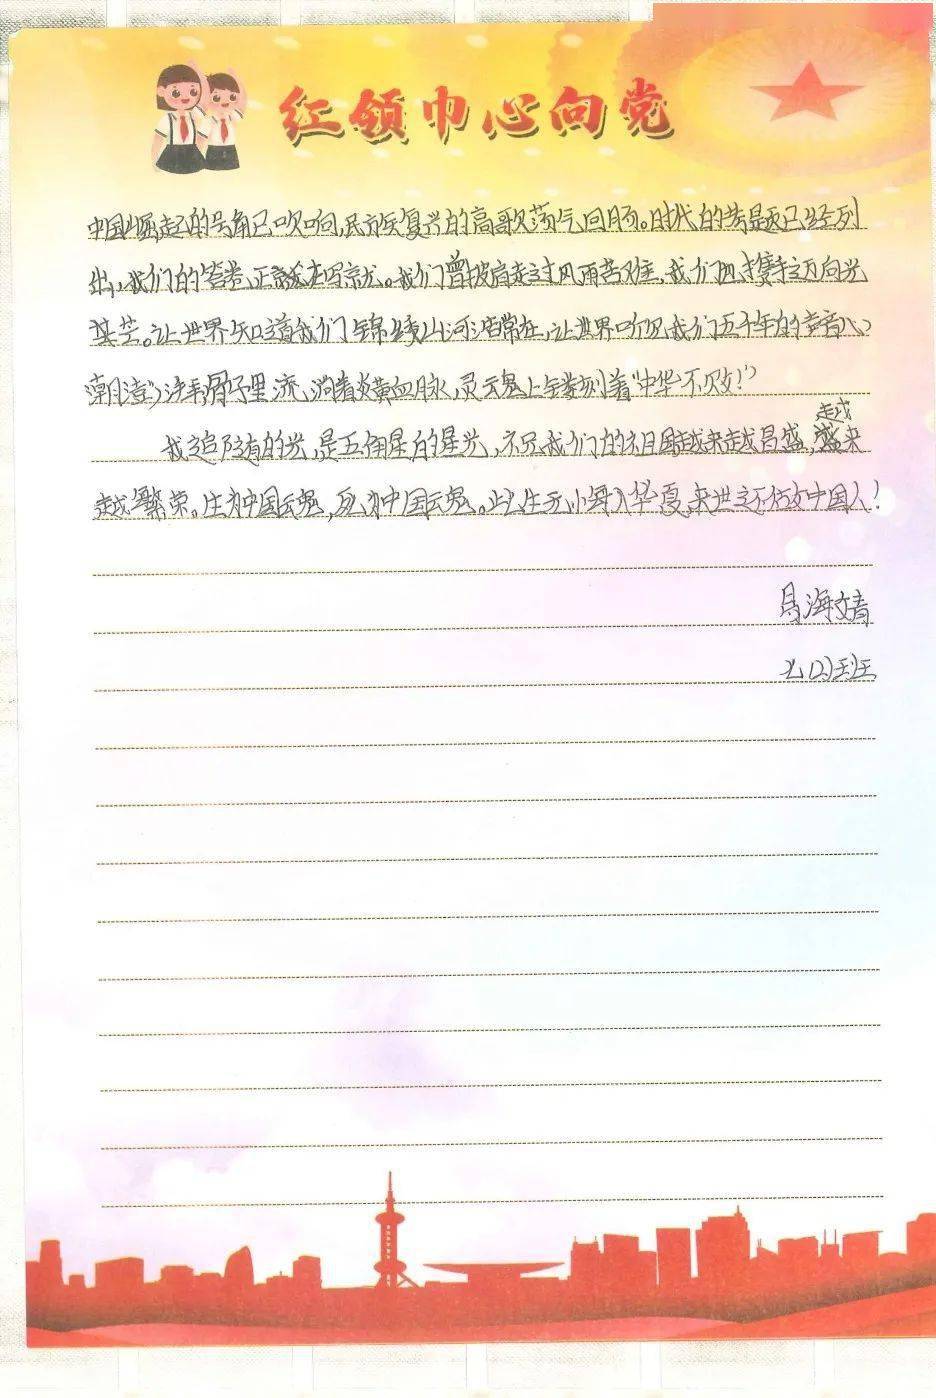 红领巾心向党
中国崛起的号角已吹响,民族复兴的高歌荡气回肠。时代的考题已经列
出,我们的答卷正在写就。我们曾披肩走过风雨苦难,我们也携手迈向光
芒。让世界知道我们锦绣山河浩常在,让世界听见我们五千年的声音心
潮澎湃,骨子里流淌着炎黄血脉,灵魂上镌刻着“中华不败!”
我追随的光,是五角星的星光,不见我们的祖国越来越昌盛,越来
越繁荣。生为中国魂,死为中国魂。此生无悔入华夏,来世还做中国人!
海婧
班